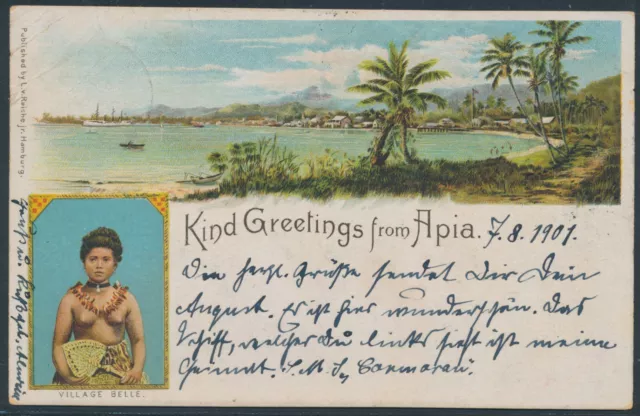 Published by L. v. Reiche jr. Hamburg.
Kind Greetings from Apia. 7.8.1901.
Die herzl. Grüße sendet Dir Dein
August. Es ist hier wunderschön. Das
Schiff, welches Du links siehst ist meine
Heimat. S.M.S. Cormoran.
VILLAGE BELLE.